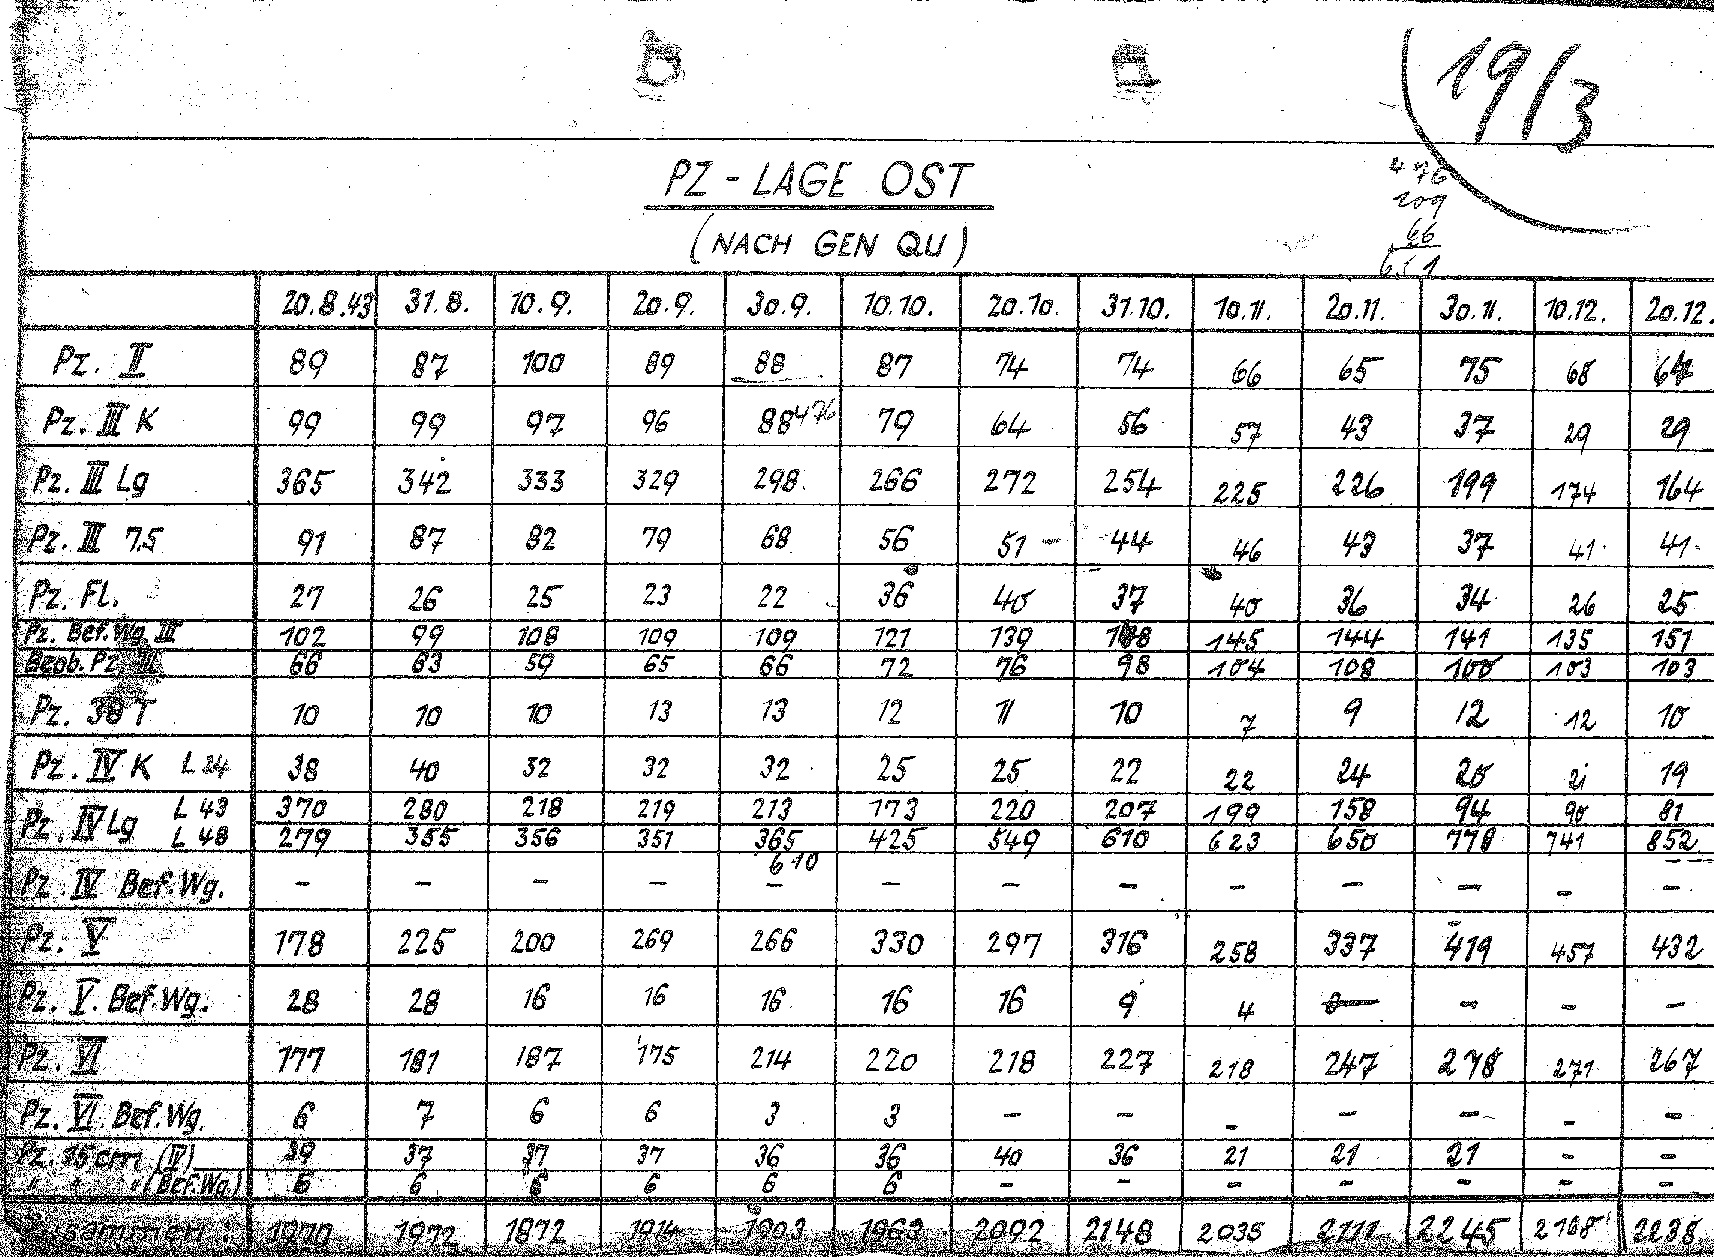 19/3
PZ - LAGE OST
(NACH GEN QU)
476
209
66
651
20.8.43 31.8. 10.9. 20.9. 30.9. 10.10. 20.10. 31.10. 10.11. 20.11. 30.11. 10.12. 20.12.
Pz. II 89 87 100 89 88 87 74 74 66 65 75 68
Pz. III K 99 99 97 96 88 476 79 64 56 57 43 37 29 29
Pz. III Lg 365 342 333 329 298. 266 272 254 225 226 199 174 164
Pz. III 7.5 91 87 82 79 68 56 51 - 44 46 43 37 41 41
Pz. Fl. 27 26 25 23 22 36 40 37 40 36 34 26 25
Pz. Bef.Wg. III 102 99 108 109 109 121 139 145 144 141 135 151
Beob. Pz. III 66 63 59 65 66 72 76 98 104 108 100 103 103
Pz. 38 T 10 10 10 13 13 12 11 10 7 9 12 12 10
Pz. IV K L 24 38 40 32 32 32 25 25 22 22 24 20 21 19
Pz. IV Lg L 43 370 280 218 219 213 173 220 207 199 158 94 90 81
L 48 279 355 356 351 365 425 549 610 623 650 778 741 852
610
Pz. IV Bef.Wg. - - - - - - - - - - - - -
Pz. V 178 225 200 269 266 330 297 316 258 337 419 457 432
Pz. V. Bef.Wg. 28 28 16 16 16 16 16 9 4 - - - -
Pz. VI 177 181 187 175 214 220 218 227 218 247 278 271 267
Pz. VI Bef.Wg. 6 7 6 6 3 3 - - - - - - -
Pz. 15 cm (IV) 39 37 37 37 36 36 40 36 21 21 21 - -
" " " (Bef.Wg.) 6 6 6 6 6 6 - - - - - - -
Zusammen: 1970 1972 1872 1914 1903 1963 2092 2148 2035 2245 2238